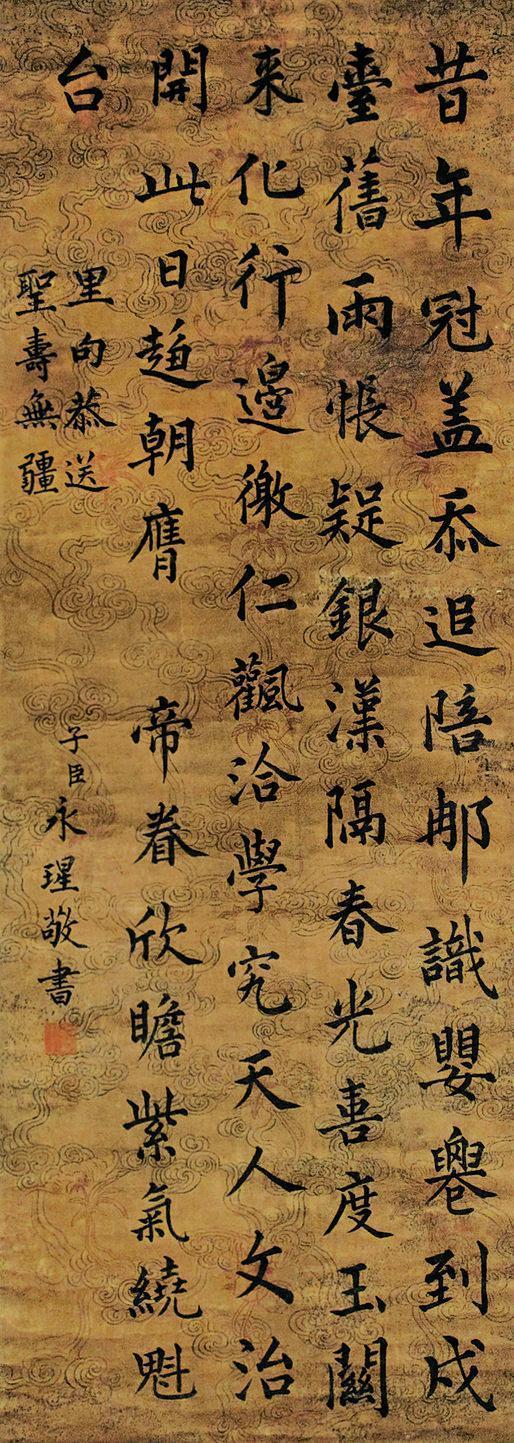 昔年冠盖忝追陪郍識嬰到戍
臺舊雨悵疑銀漢隔春光喜度玉關
来化行邊徼仁飌洽學究天人文治
開此日趍朝膺帝眷欣瞻紫氣繞魁
台
里向恭送
聖壽無疆
子臣永瑆敬書